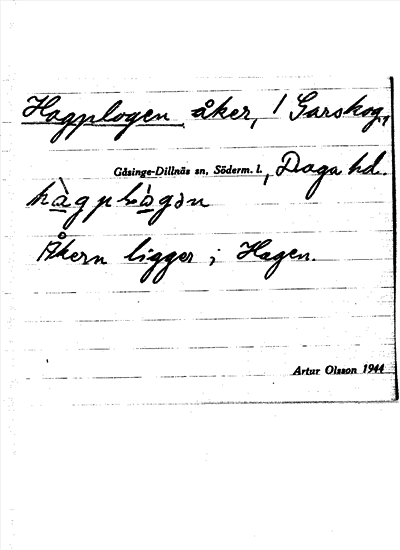 Hagplogen åker, / Garskog,
Gåsinge-Dillnäs sn, Söderm. l., Daga hd.
Åkern ligger i Hagen.
Artur Olsson 1944